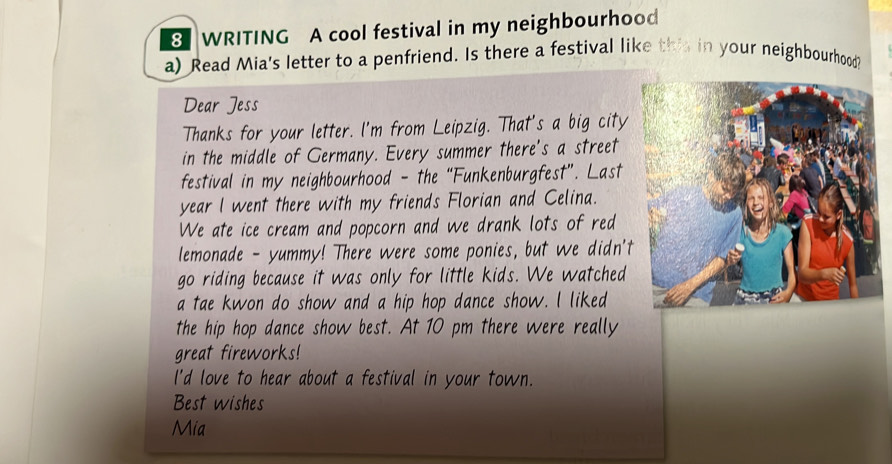 8 WRITING A cool festival in my neighbourhood
a) Read Mia's letter to a penfriend. Is there a festival like this in your neighbourhood?
Dear Jess
Thanks for your letter. I'm from Leipzig. That's a big city
in the middle of Germany. Every summer there's a street
festival in my neighbourhood - the "Funkenburgfest". Last
year I went there with my friends Florian and Celina.
We ate ice cream and popcorn and we drank lots of red
lemonade - yummy! There were some ponies, but we didn't
go riding because it was only for little kids. We watched
a tae kwon do show and a hip hop dance show. I liked
the hip hop dance show best. At 10 pm there were really
great fireworks!
I'd love to hear about a festival in your town.
Best wishes
Mia